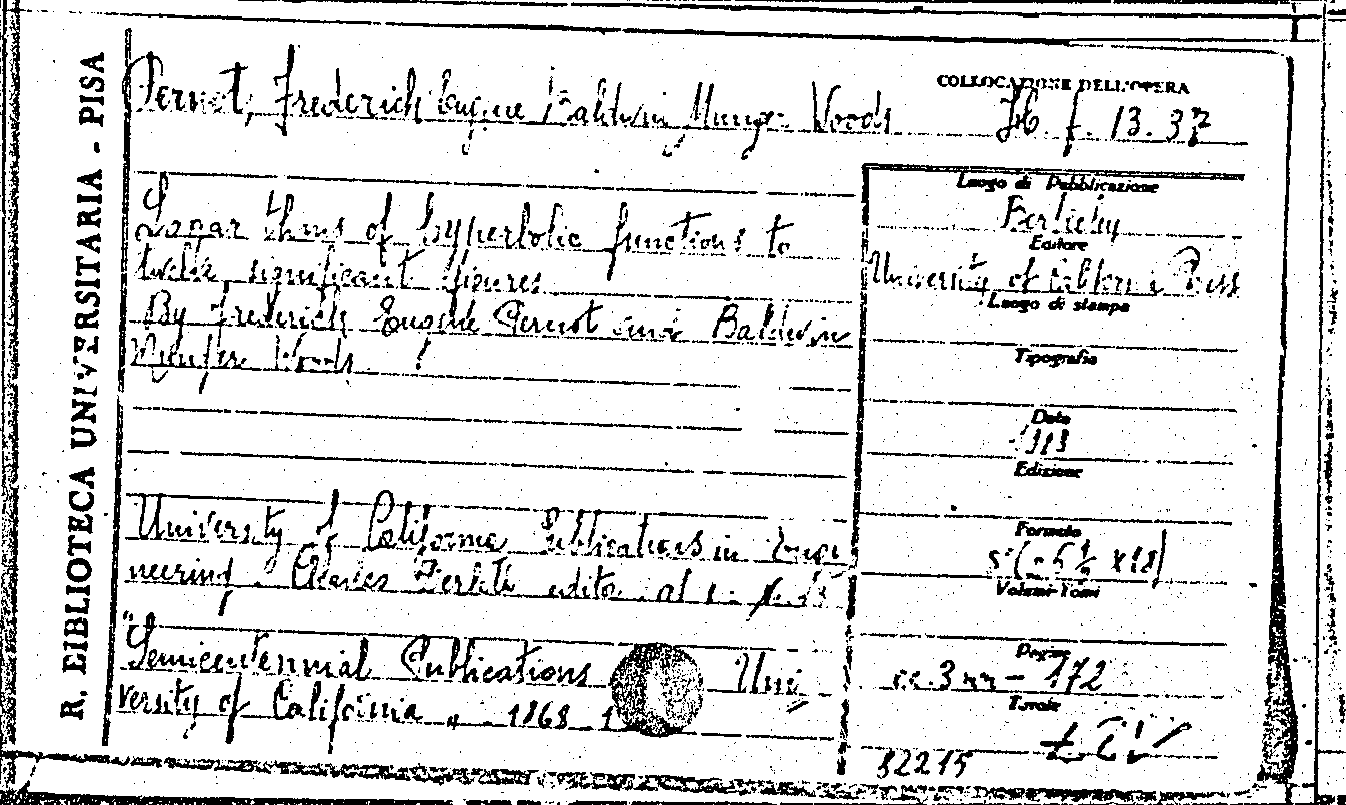 R. BIBLIOTECA UNIVERSITARIA - PISA
COLLOCAZIONE DELL'OPERA
Pernot, Frederich Eugene Baldwin Munger Woods
H. f. 13. 37
Logarithms of hyperbolic functions to
twelve significant figures
By Frederich Eugene Pernot and Baldwin
Munger Woods
University of California Publications in Engi
neering. Charles Derleth editor
"Semicentennial Publications Uni
versity of California „ 1868
Luogo di Pubblicazione
Berkeley
Editore
University of California Press
Luogo di stampa
Tipografia
Data
1918
Edizione
Formato
Volumi-Tomi
Pagine
cc. 3 nn - 172
Tavole
32215